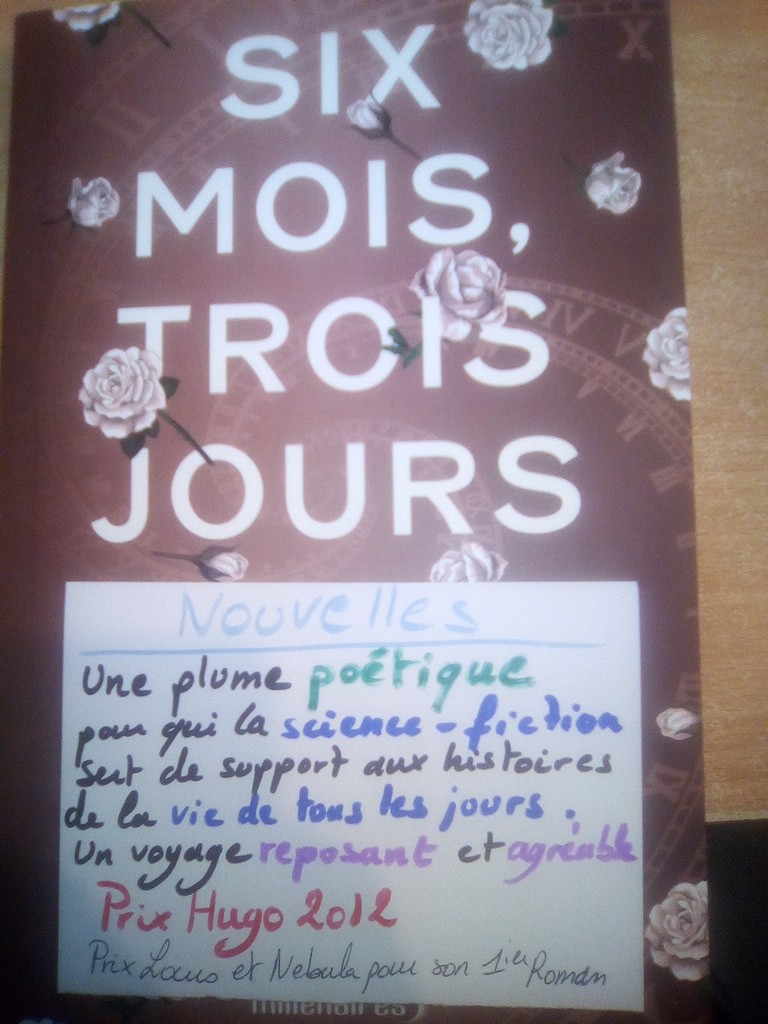 SIX
MOIS,
TROIS
JOURS
Nouvelles
Une plume poétique
pour qui la science-fiction
sert de support aux histoires
de la vie de tous les jours.
Un voyage reposant et agréable
Prix Hugo 2012
Prix Locus et Nebula pour son 1ier Roman